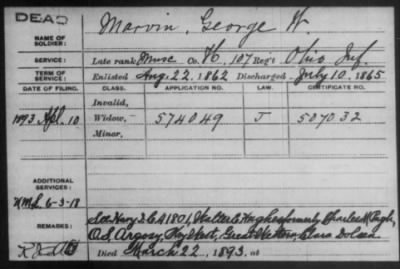 DEAD
NAME OF SOLDIER: Marvin, George W
SERVICE: Late rank Musc Co. H, 107 Reg't Ohio Inf.
TERM OF SERVICE: Enlisted Aug. 22, 1862 Discharged July 10, 1865
DATE OF FILING. CLASS. APPLICATION NO. LAW. CERTIFICATE NO.
Invalid,
1893 Apl. 10 Widow, 574049 J 507032
Minor,
ADDITIONAL SERVICES:
6-3-18
REMARKS: See Navy
O.S., Argosy, Key West, Great Western, Clara Dolsen
Died March 22, 1893, at